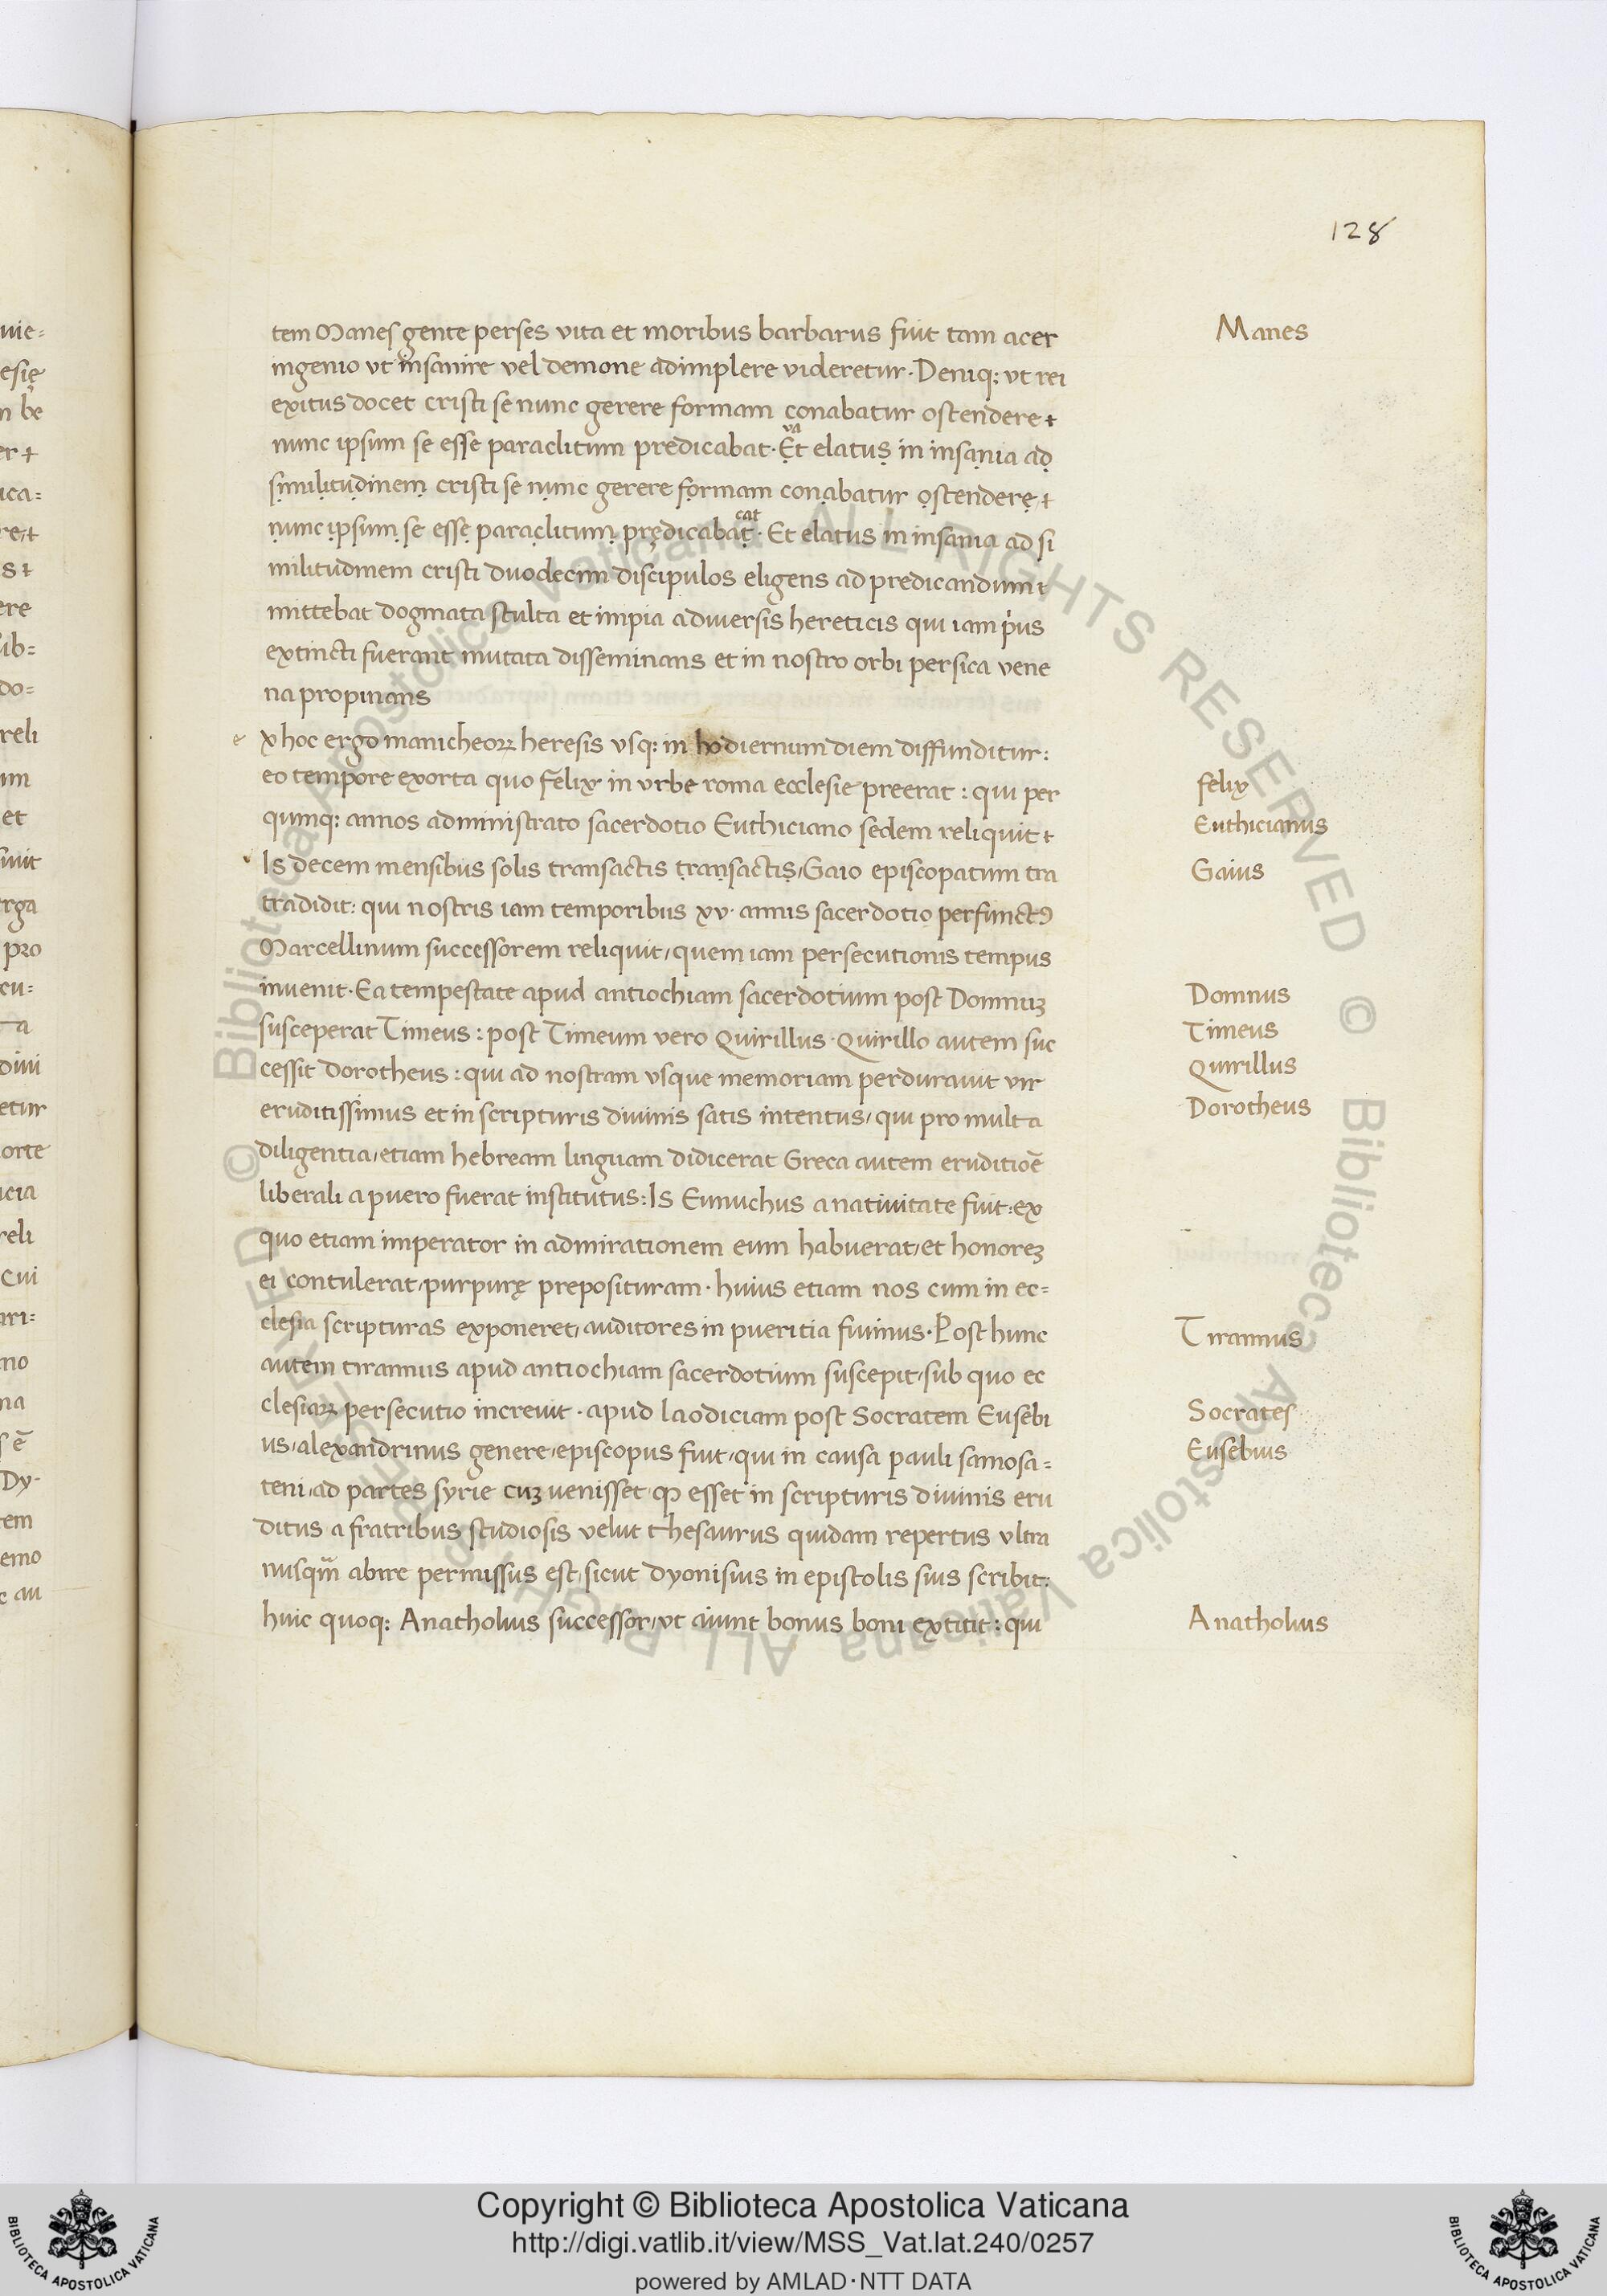 128
tem Manes gente perses vita et moribus barbarus fuit tam acer
Manes
ingenio vt insanire vel demone adimplere videretur. Deniq; vt rei
exitus docet cristi se nunc gerere formam conabatur ostendere ⁊
va
nunc ipsum se esse paraclitum predicabat. Et elatus in insania ad
similitudinem cristi se nunc gerere formam conabatur ostendere, ⁊
cat
nunc ipsum se esse paraclitum prędicabat. Et elatus in insania ad si
militudinem cristi duodecim discipulos eligens ad predicandum ⁊
mittebat dogmata stulta et impia a diuersis hereticis qui iam pͥus
extincti fuerant mutata disseminans et in nostro orbi persica vene
na propinans
e x hoc ergo manicheoꝝ heresis vsq; in hodiernum diem diffunditur:
eo tempore exorta quo felix in vrbe roma ecclesie preerat: qui per
felix
quinq; annos administrato sacerdotio Euthiciano sedem reliquit ⁊
Euthicianus
Is decem mensibus solis transactis transactis, Gaio episcopatum tra
Gaius
tradidit: qui nostris iam temporibus xv. annis sacerdotio perfunctꝰ
Marcellinum successorem reliquit, quem iam persecutionis tempus
inuenit. Ea tempestate apud antiochiam sacerdotium post Domnuꝫ
Domnus
susceperat Timeus: post Timeum vero Quirillus. Quirillo autem suc
Timeus
cessit Dorotheus: qui ad nostram vsque memoriam perdurauit vir
Quirillus
eruditissimus et in scripturis diuinis satis intentus, qui pro multa
Dorotheus
diligentia, etiam hebream linguam didicerat Greca autem eruditiōe
liberali a puero fuerat institutus: Is Eunuchus a natiuitate fuit: ex
quo etiam imperator in admirationem eum habuerat, et honoreꝫ
ei contulerat, purpurę preposituram. huius etiam nos cum in ec=
clesia scripturas exponeret, auditores in pueritia fuimus. Post hunc
Tirannus
autem tirannus apud antiochiam sacerdotium suscepit, sub quo ec
clesiaꝝ persecutio increuit. apud laodiciam post Socratem Eusebi
Socrates
us, alexandrinus genere, episcopus fuit, qui in causa pauli samosa=
Eusebius
teni, ad partes syrie cuꝫ uenisset, ꝙ esset in scripturis diuinis eru
ditus a fratribus studiosis velut thesaurus quidam repertus vltra
nusqm̃ abire permissus est, sicut dyonisius in epistolis suis scribit:
huic quoq; Anatholius successor, vt aiunt bonus boni extitit: qui
Anatholius
Copyright © Biblioteca Apostolica Vaticana
http://digi.vatlib.it/view/MSS_Vat.lat.240/0257
powered by AMLAD·NTT DATA
BIBLIOTECA APOSTOLICA VATICANA
BIBLIOTECA APOSTOLICA VATICANA
© Biblioteca Apostolica Vaticana ALL RIGHTS RESERVED © Biblioteca Apostolica Vaticana ALL RIGHTS RESERVED